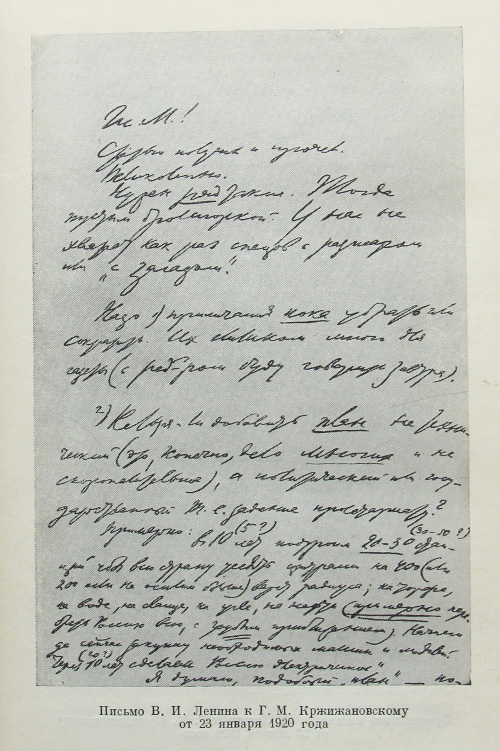 Гл. М.!
Статью получил и прочел.
Великолепно.
Нужен ряд таких. Тогда
пустим брошюркой. У нас не
хватает как раз спецов с размахом
или „с загадом“.
Надо 1) примечания пока убрать или
сократить. Их слишком много для
газеты (с ред-ром буду говорить завтра).
2) Нельзя-ли добавить план не техни-
ческий (это, конечно, дело многих и не
скоропалительное), а политический или госу-
дарственный, т. е. задание пролетариату?
Примерно: в 10 (5?) лет построим 20-30 (30-50?) стан-
ций чтобы всю страну усеять центрами на 400 (или
200 если не осилим больше) верст радиуса; на торфе,
на воде, на сланце, на угле, на нефти (примерно пере-
брать Россию всю, с грубым приближением). Начнем-
де сейчас закупку необходимых машин и моделей.
Через 10 (20?) лет сделаем Россию „электрической“
Я думаю, подобный „план“ — по-
Письмо В. И. Ленина к Г. М. Кржижановскому
от 23 января 1920 года